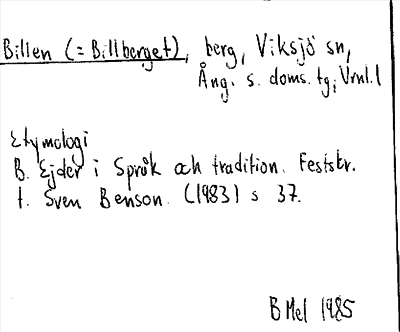 Billen (= Billberget), berg, Viksjö sn,
Ång. s. doms. tg, Vrnl. l
Etymologi
B. Ejder i Språk och tradition. Festskr.
t. Sven Benson. (1983) s 37.
B Mel 1985